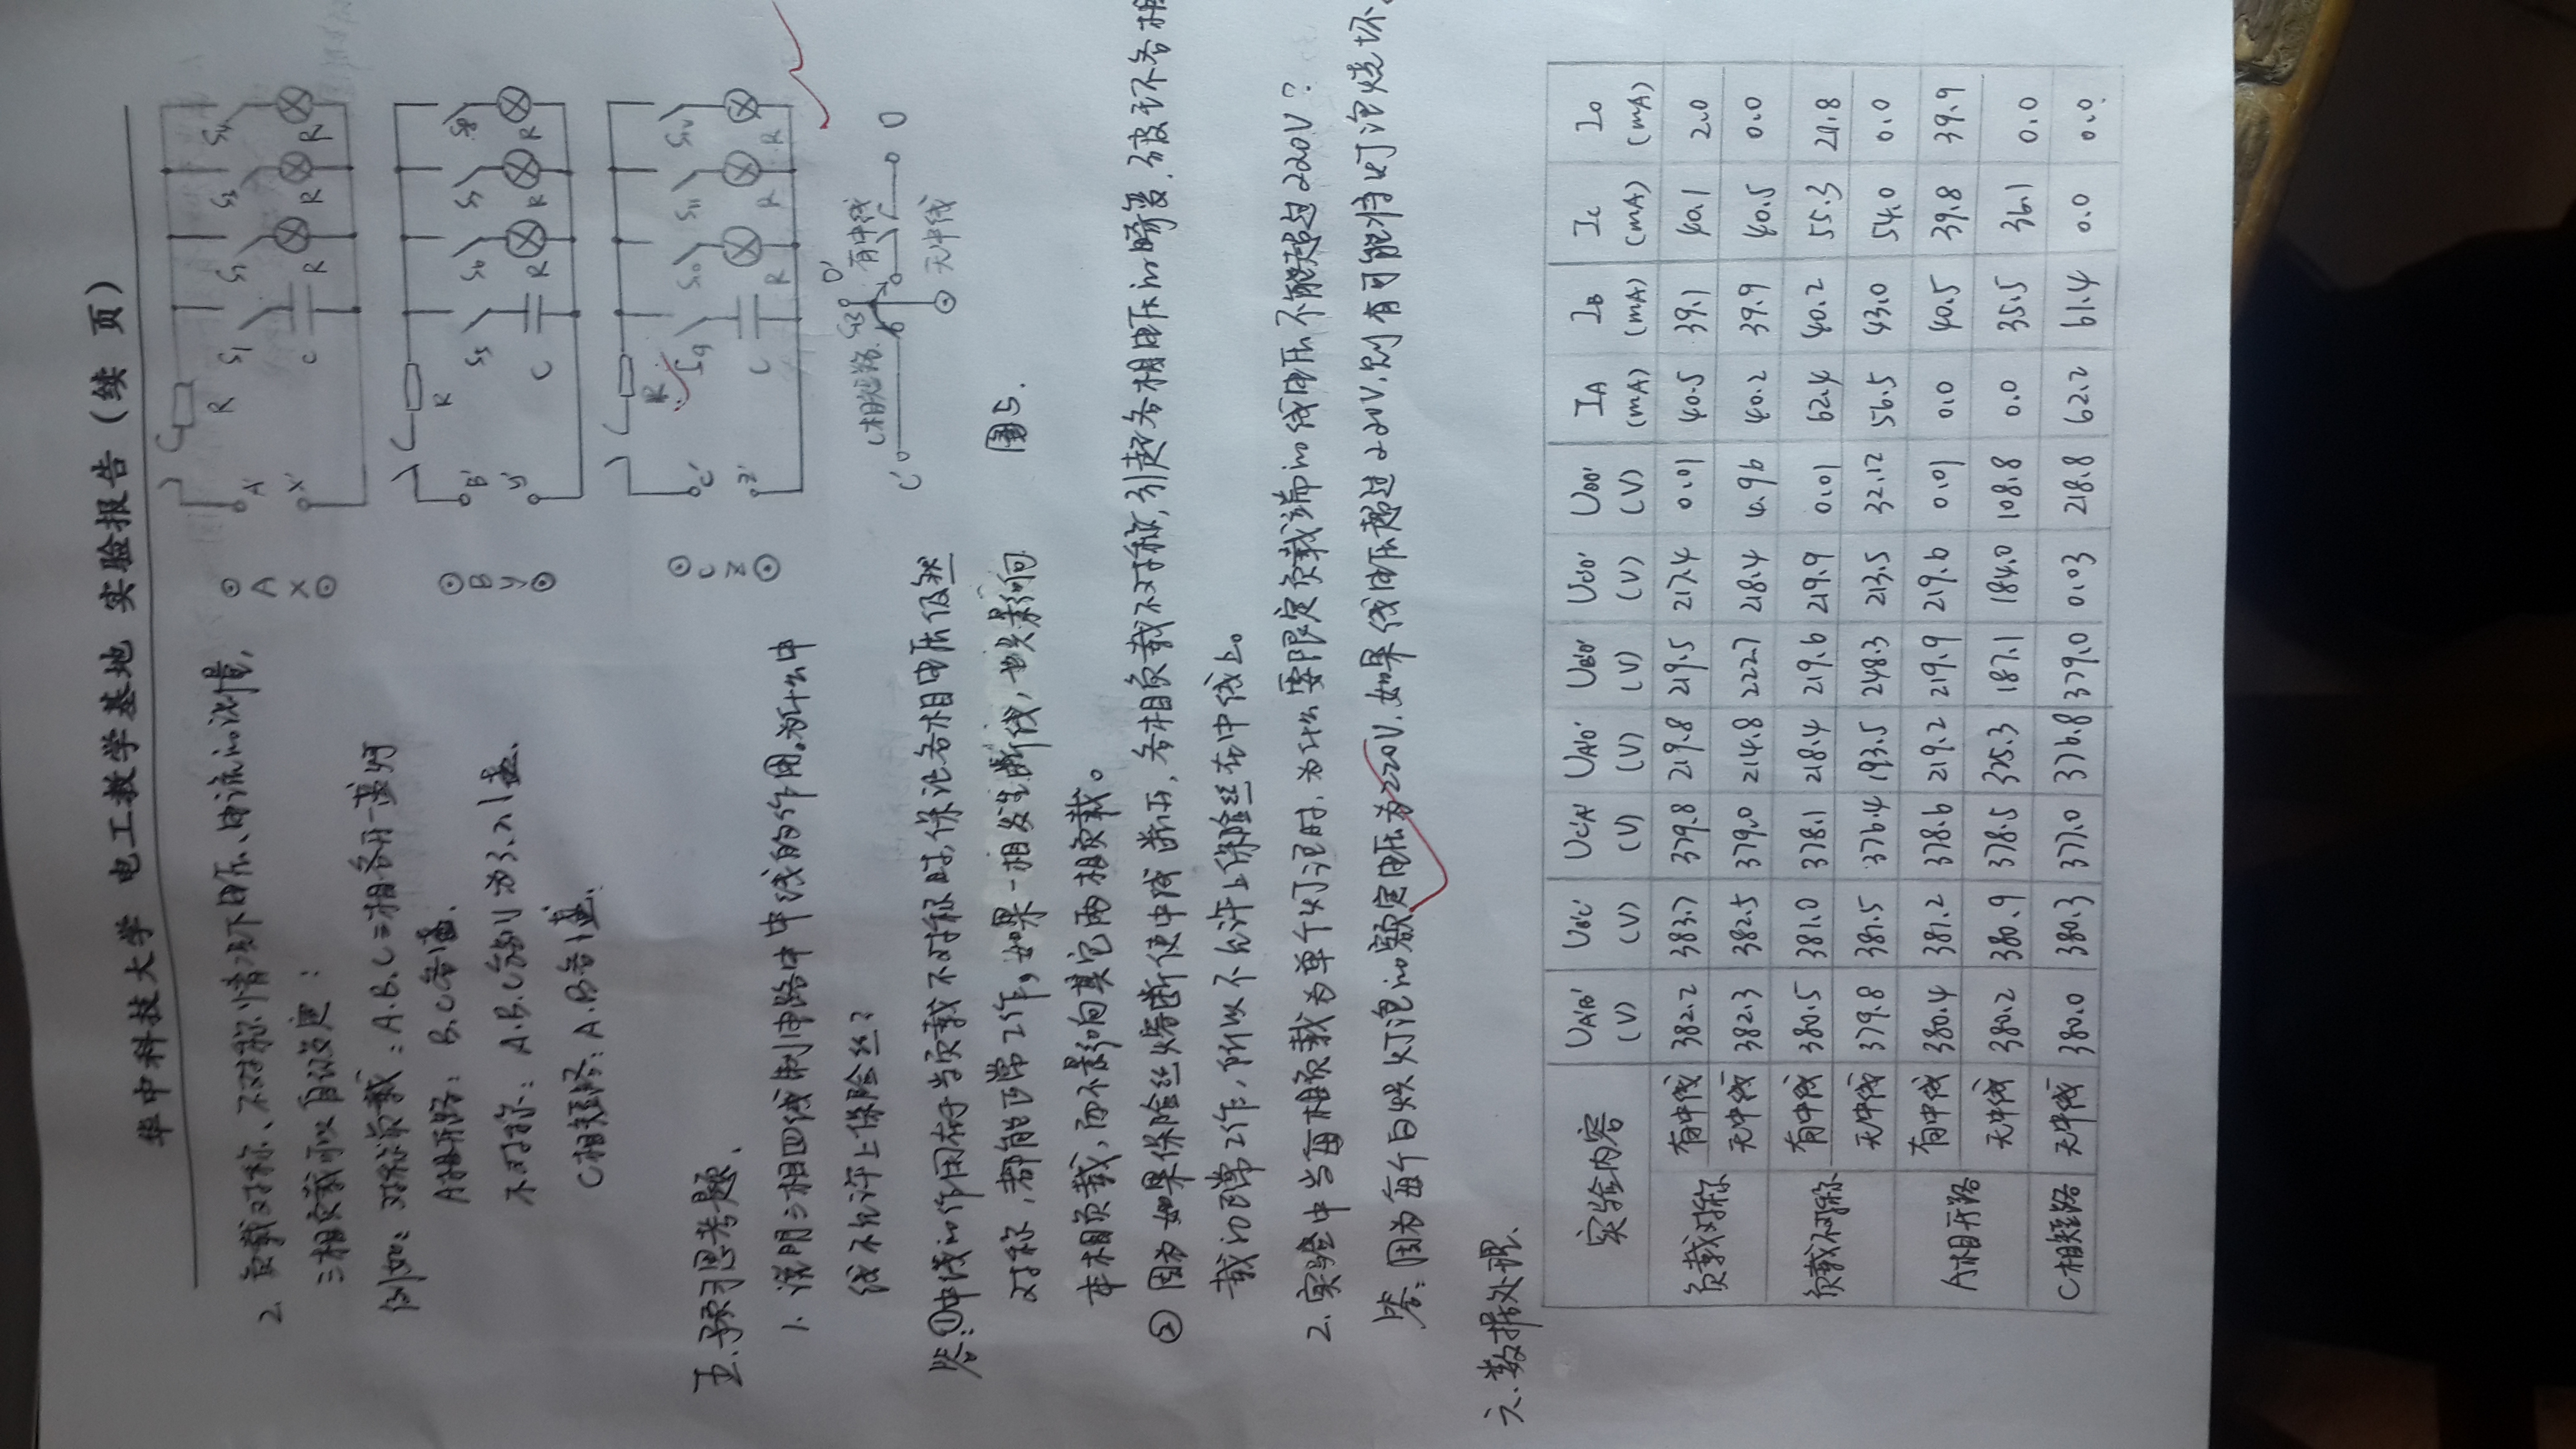 华中科技大学 电工教学基地 实验报告(续 页)
2. 负载对称、不对称情况下电压、电流的测量,
三相负载可以自行设定:
例如: 对称负载: A.B.C三相各开一盏灯
A相开路: B.C各1盏.
不对称: A.B.C分别为3.2.1盏.
C相短路: A.B各1盏.
A X A' X' R S1 S2 S3 S4 C R R R
B Y B' Y' R S5 S6 S7 S8 C R R R
C Z C' Z' R S9 S10 S11 S12 C R R R
C' C相短路 S13 O' 有中线 O
无中线
图5.
五.预习思考题.
1. 说明三相四线制电路中中线的作用。为什么中
线不允许上保险丝?
答:①中线的作用在于当负载不对称时,保证各相电压仍然
对称,都能正常工作,如果一相发生断线,也只影响
本相负载,而不影响其它两相负载。
② 因为如果保险丝熔断使中线断开,各相负载不对称,引起各相电压的畸变,破坏各相
载的正常工作,所以不允许上保险丝在中线上。
2. 实验中当每相负载为单个灯泡时,为什么要限定负载端的线电压不能超过220V?
答: 因为每个白炽灯泡的额定电压为220V.如果线电压超过220V,则有可能将灯泡烧坏.
六.数据处理.
实验内容 UA'B' (V) UB'C' (V) UC'A' (V) UA'O' (V) UB'O' (V) UC'O' (V) UOO' (V) IA (mA) IB (mA) IC (mA) IO (mA)
负载对称 有中线 382.2 383.7 379.8 219.8 219.5 217.4 0.01 40.5 39.1 40.1 2.0
无中线 382.3 382.5 379.0 214.8 222.7 218.4 4.96 40.2 39.9 40.5 0.0
负载不对称 有中线 380.5 381.0 378.1 218.4 219.6 219.9 0.01 62.4 40.2 55.3 21.8
无中线 379.8 381.5 376.4 193.5 248.3 213.5 32.12 56.5 43.0 54.0 0.0
A相开路 有中线 380.4 381.2 378.6 219.2 219.9 219.6 0.01 0.0 40.5 39.8 39.9
无中线 380.2 380.9 378.5 325.3 187.1 184.0 108.8 0.0 35.5 36.1 0.0
C相短路 无中线 380.0 380.3 377.0 376.8 379.0 0.03 218.8 62.2 61.4 0.0 0.0